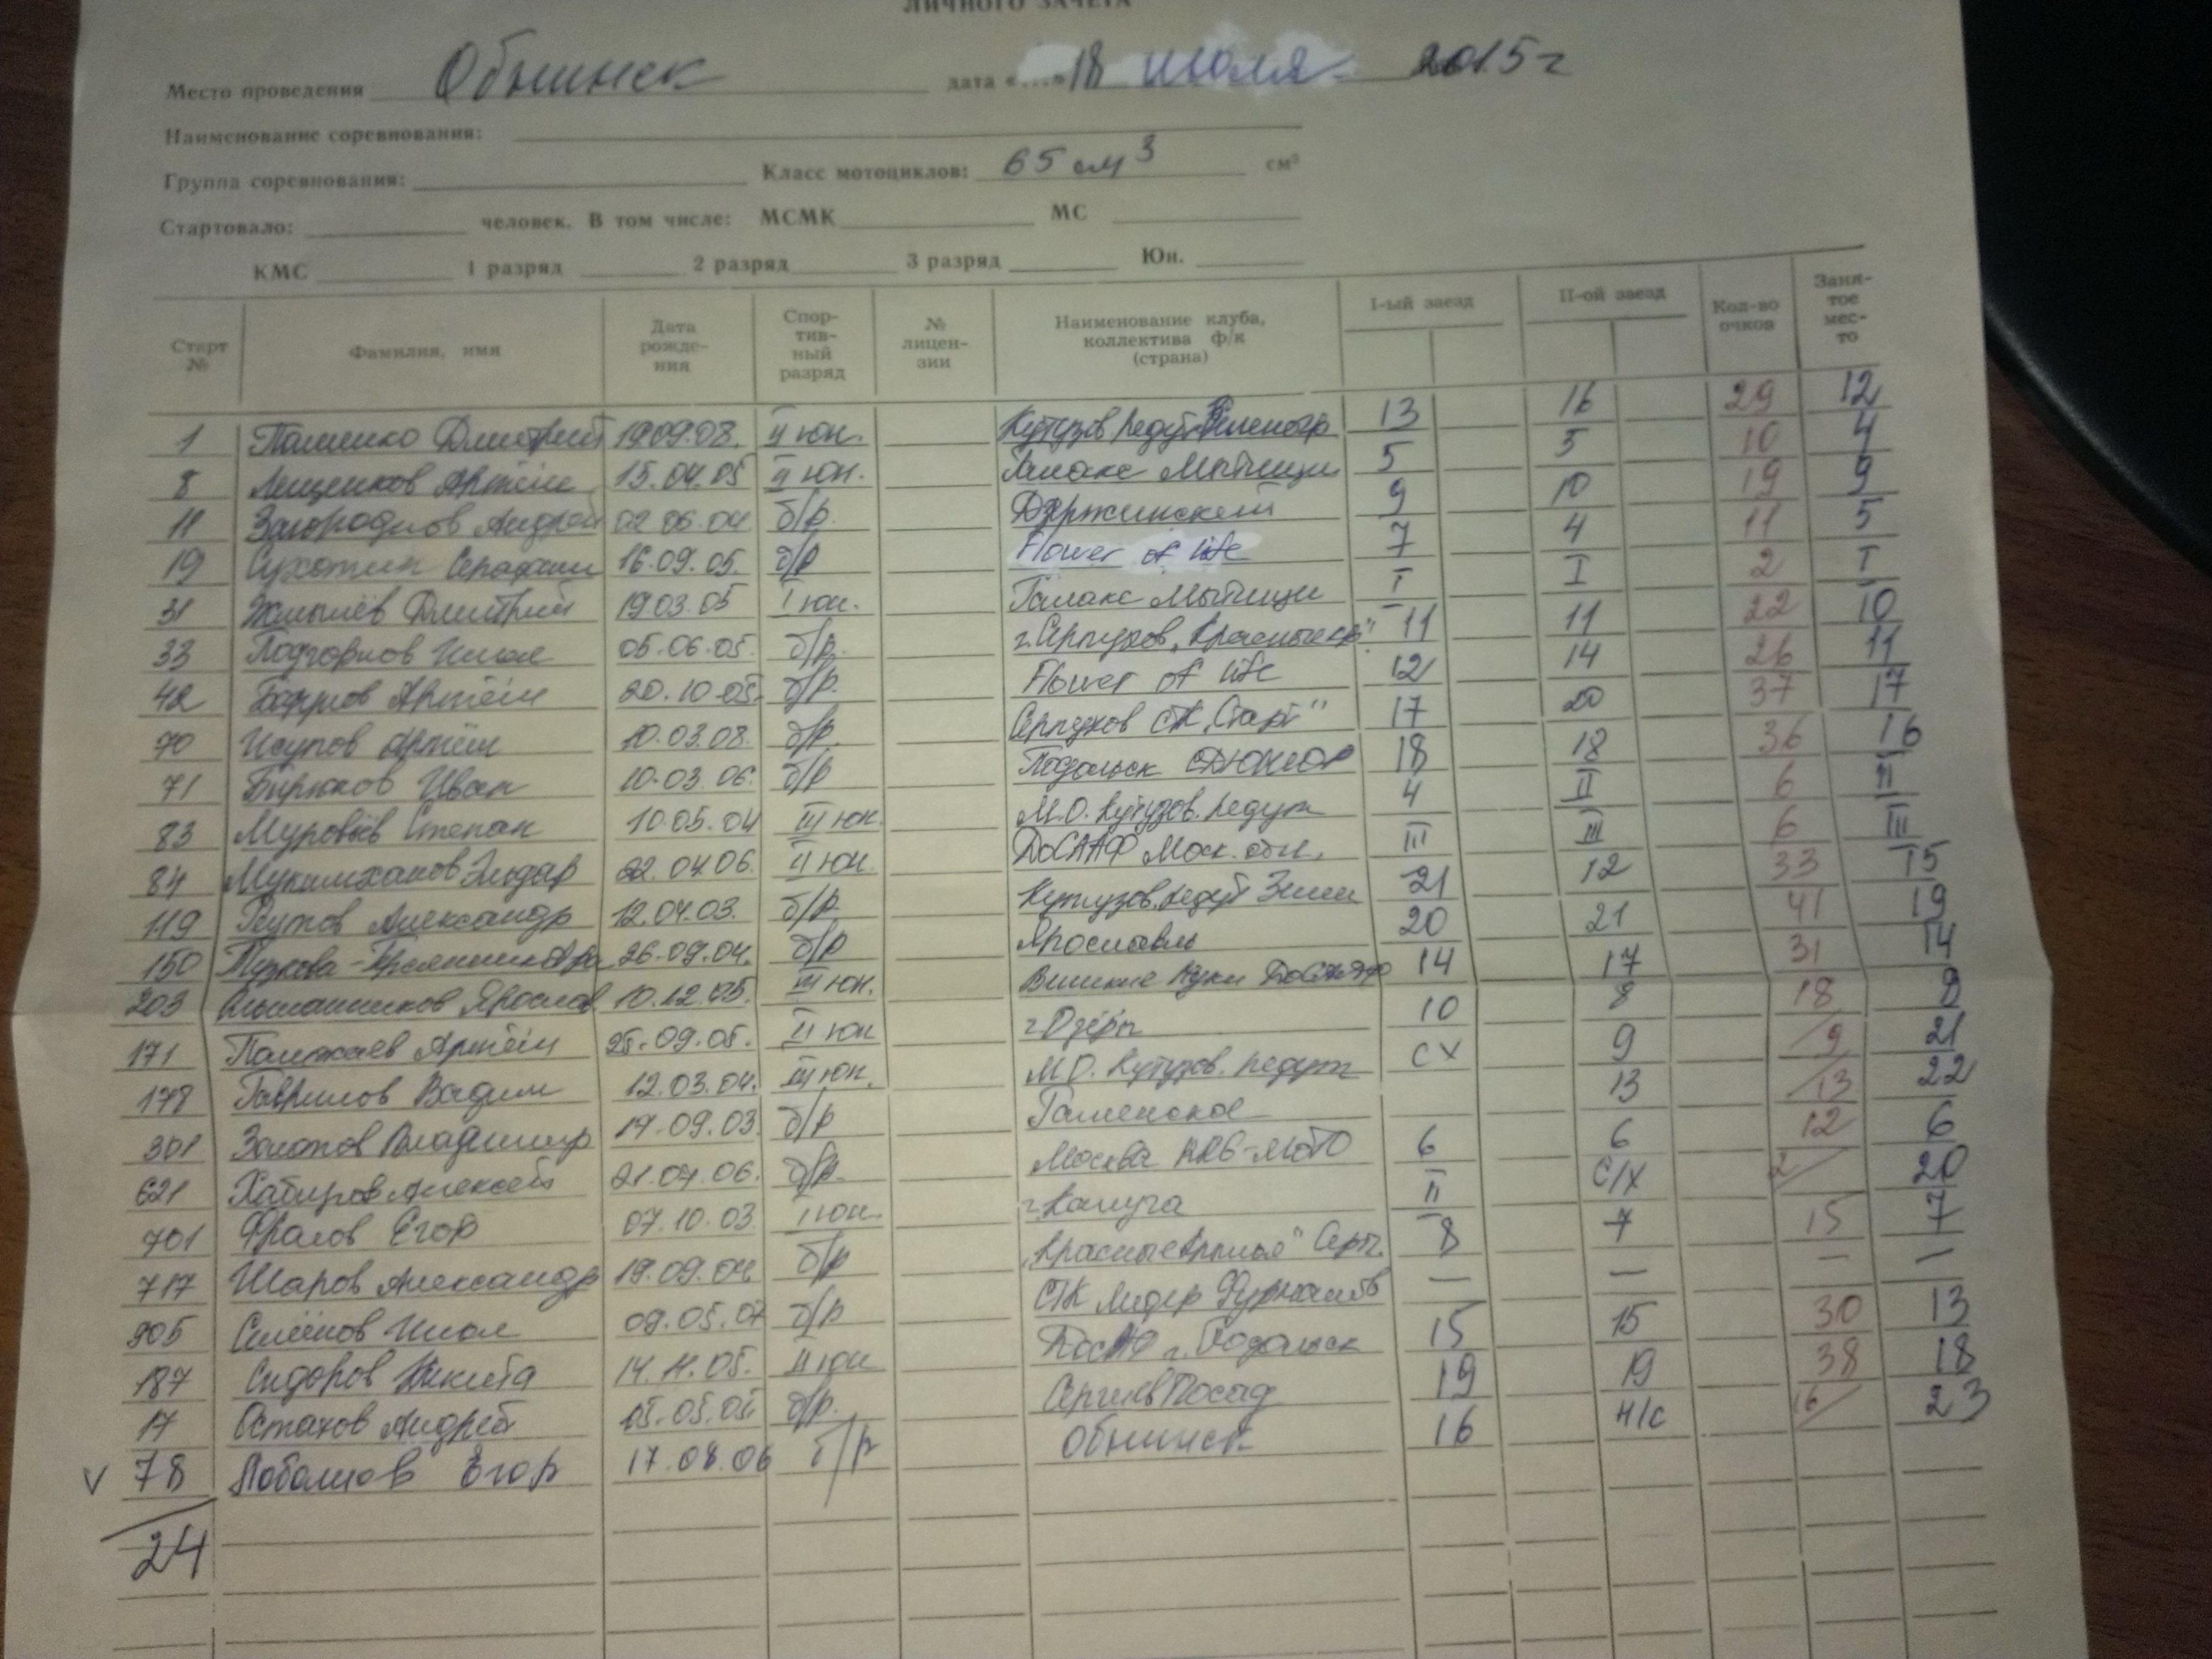 ЛИЧНОГО ЗАЧЕТА
Место проведения Обнинск дата «....» 18 июля 2015 г
Наименование соревнования:
Группа соревнования: Класс мотоциклов: 65 см3 см³
Стартовало: человек. В том числе: МСМК МС
КМС 1 разряд 2 разряд 3 разряд Юн.
Старт № Фамилия, имя Дата рожде- ния Спор- тив- ный разряд № лицен- зии Наименование клуба, коллектива ф/к (страна) I-ый заезд II-ой заезд Кол-во очков Заня- тое мес- то
1 Дмитрий 19.09.08. II юн. Кутузов редут 13 16 29 12
8 Лещенков Артём 15.04.05 II юн. Мытищи 5 5 10 4
11 Загороднов Андрей 02 06 04 б/р. Дзержинский 9 10 19 9
19 Сухотин Серафим 16.09.05. б/р Flower of life 7 4 11 5
31 Дмитрий 19.03.05 I юн. Мытищи I I 2 I
33 Подгорнов Илья 05.06.05. б/р. г. Серпухов, 11 11 22 10
42 Артём 20.10.05. б/р. Flower of life 12 14 26 11
70 Исупов Артём 10.03.08. б/р. Серпухов СТК "Старт" 17 20 37 17
71 Бирюков Иван 10.03.06. б/р Подольск 18 18 36 16
83 Муровьёв Степан 10.05.04 III юн. М.О. Кутузов. редут 4 II 6 II
84 Эльдар 22.04.06. II юн. ДОСААФ Моск. обл. III III 6 III
119 Реутов Александр 12.04.03. б/р. Кутузов. редут 21 12 33 15
150 26.09.04. б/р Ярославль 20 21 41 19
203 10.12.05. III юн. Великие Луки ДОСААФ 14 17 31 14
171 Артём 25.09.05. II юн г. Озёры 10 8 18 8
178 Гаврилов Вадим 12.03.04. III юн. М.О. Кутузов. редут СХ 9 9 21
301 Золотов Владимир 17.09.03. б/р 13 13 22
621 Хабиров Алексей 21.07.06. б/р. Москва 6 6 12 6
701 Фролов Егор 07.10.03. I юн. г. Калуга II С/Х 2 20
717 Шаров Александр 19.09.04 б/р Серп. 8 7 15 7
905 Илья 09.05.07 б/р СТК Лидер — — — —
187 Сидоров Никита 14.11.05. II юн г. Подольск 15 15 30 13
17 Остахов Андрей 05.05.05. б/р. Сергиев Посад 19 19 38 18
V 78 Егор 17.04.06 б/р Обнинск 16 Н/С 16 23
24